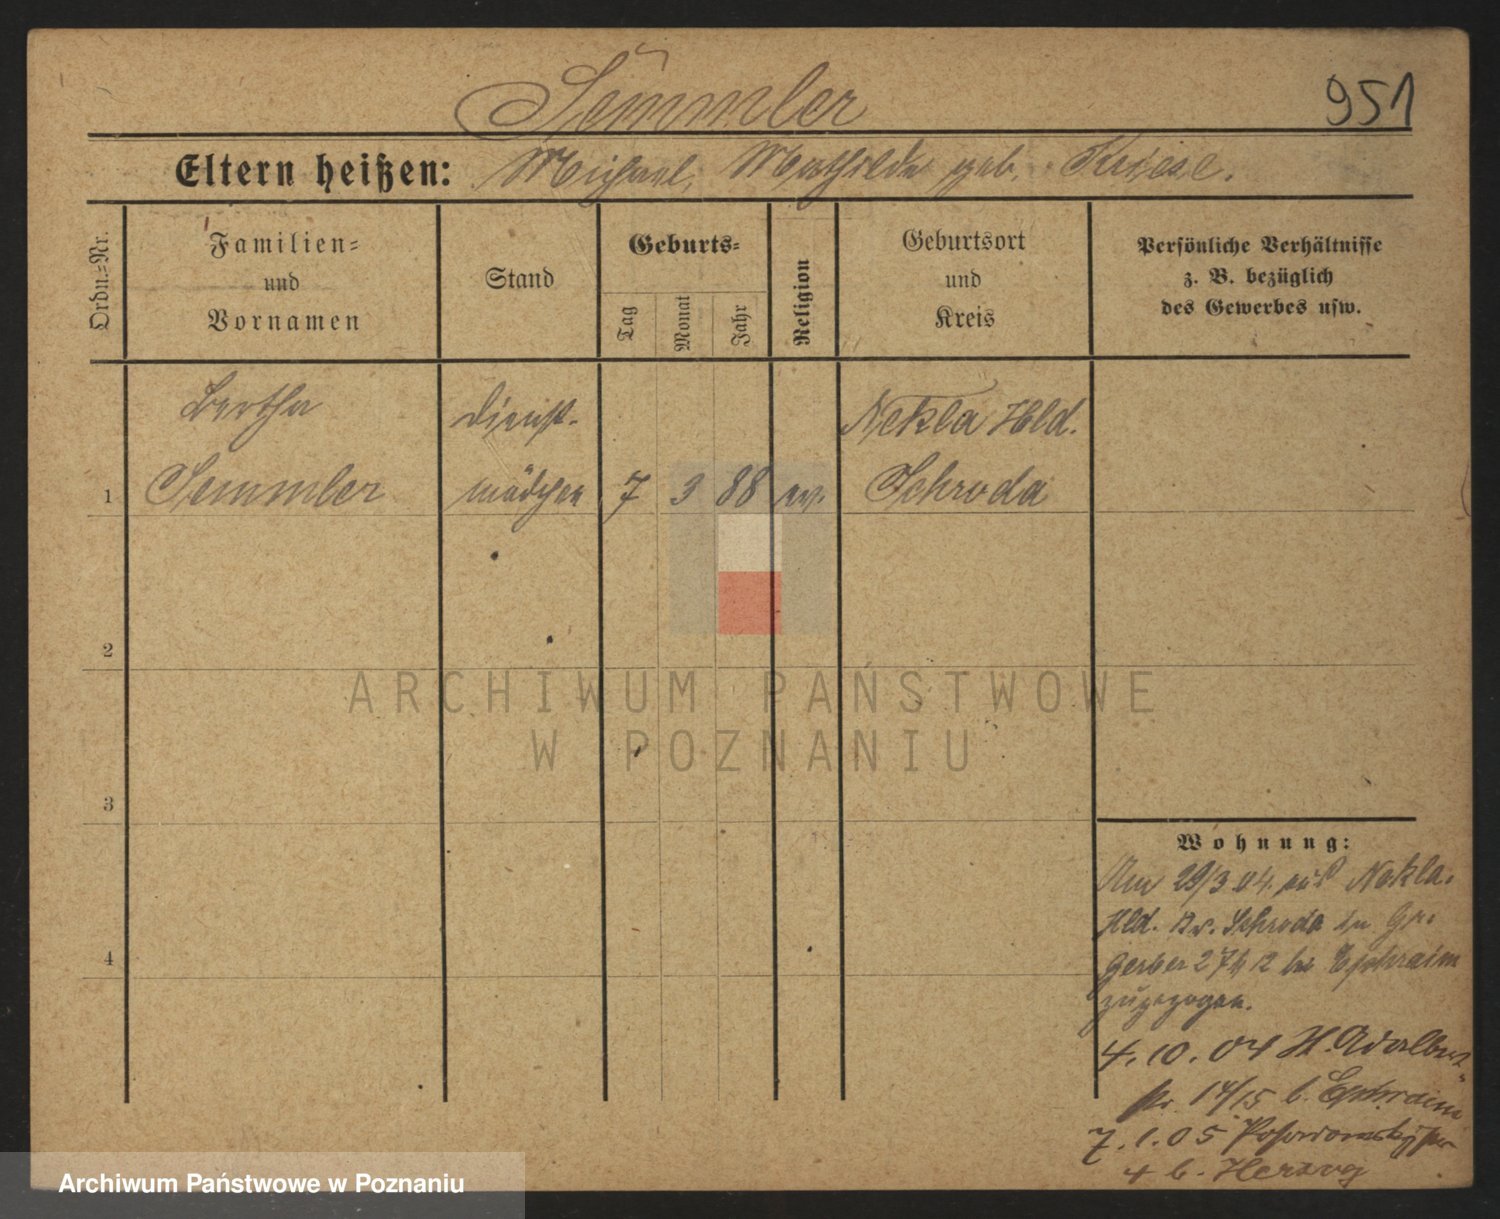 Semmler
951
Eltern heißen: Michael, Mathilde geb. Kriese.
Ordn.=Nr.
Familien=
und
Vornamen
Stand
Geburts=
Tag
Monat
Jahr
Religion
Geburtsort
und
Kreis
Persönliche Verhältnisse
z. B. bezüglich
des Gewerbes usw.
Bertha
Dienst-
Nekla Hld.
1 Semmler mädchen 7 3 88 ev. Schroda
2
ARCHIWUM PAŃSTWOWE
W POZNANIU
3
4
Wohnung:
Am 29/3 04. aus Nekla.
Hld. Kr. Schroda in Gr.
Gerber 27 12 bei Ephraim
zugezogen.
4.10.04 St. Adalbert-
str. 14/15 b. Ephraim
7.1.05
4 b. Herzog
Archiwum Państwowe w Poznaniu